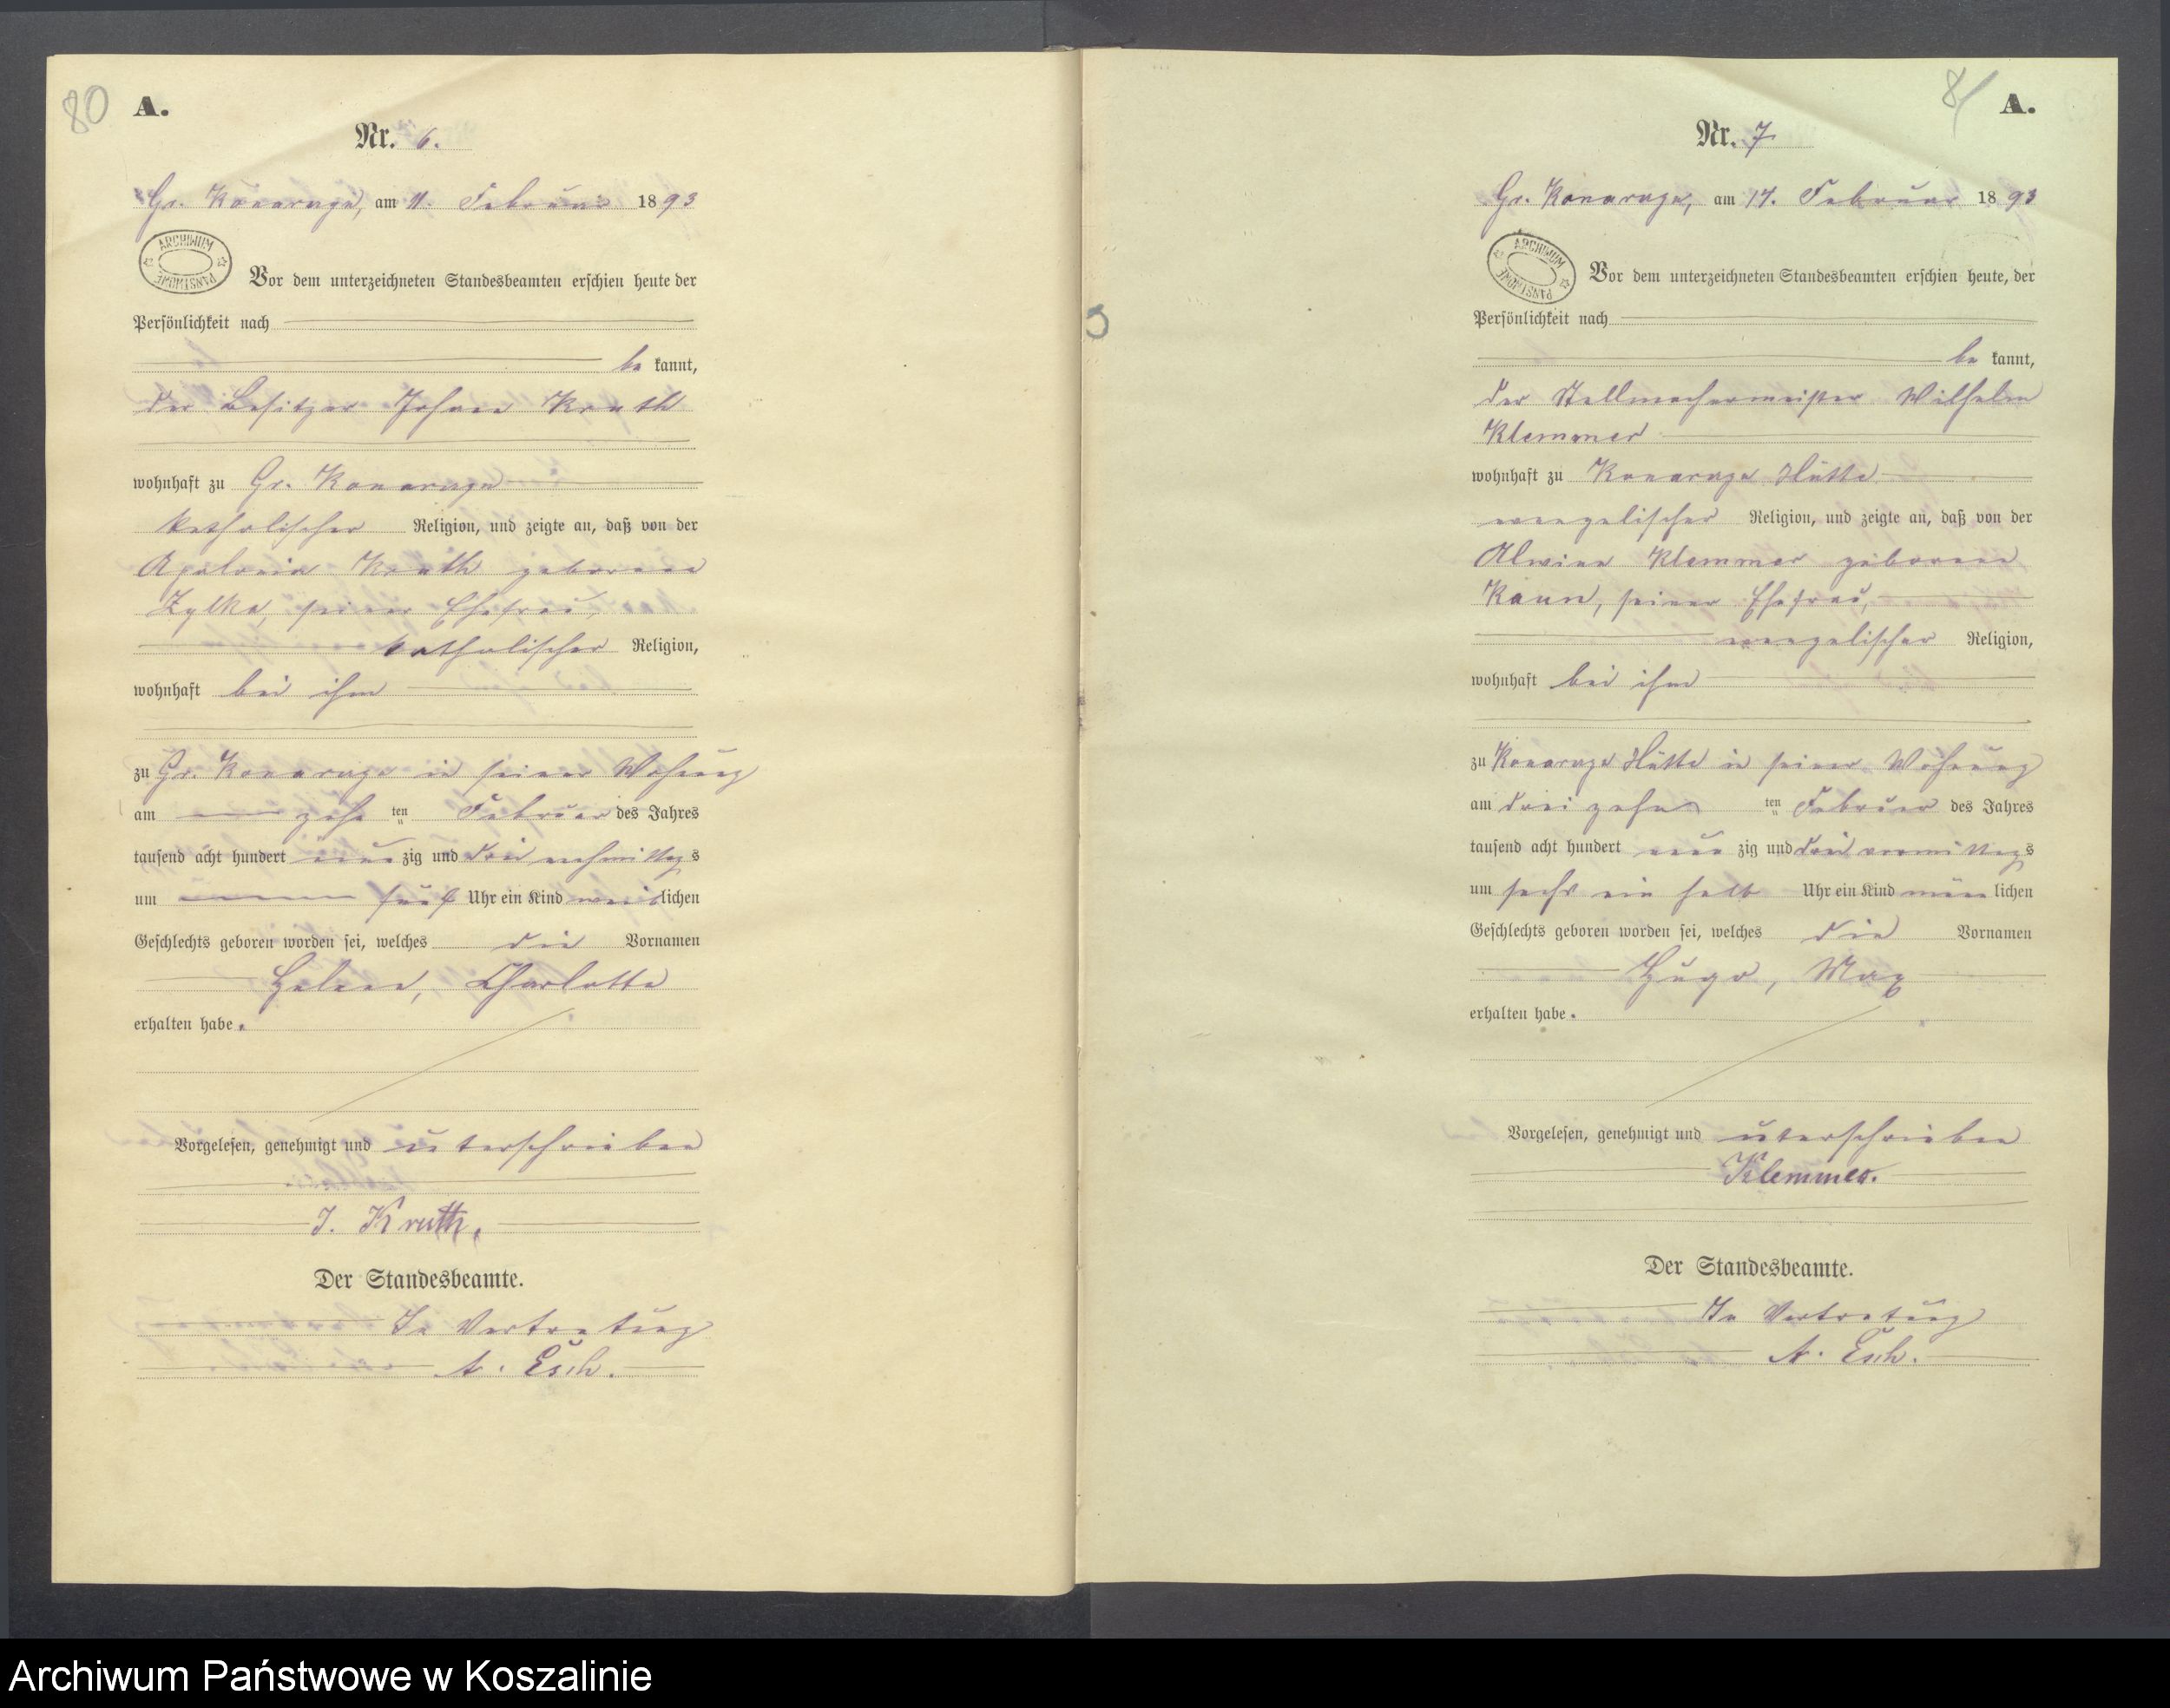 80
A.
Nr. 6.
Gr. Konarczyn, am 11. Februar 1893
ARCHIWUM PAŃSTWOWE
Vor dem unterzeichneten Standesbeamten erschien heute der
Persönlichkeit nach
be kannt,
der Besitzer Johann Kruth
wohnhaft zu Gr. Konarczyn
katholischer Religion, und zeigte an, daß von der
Apolonia Kruth geborene
Zylka, seiner Ehefrau,
katholischer Religion,
wohnhaft bei ihm
zu Gr. Konarczyn in seiner Wohnung
am zehn ten Februar des Jahres
tausend acht hundert neun zig und drei nachmittags
um fünf Uhr ein Kind weiblichen
Geschlechts geboren worden sei, welches die Vornamen
Helene, Charlotte
erhalten habe.
Vorgelesen, genehmigt und unterschrieben
J. Kruth.
Der Standesbeamte.
In Vertretung
A. Esch.
81
A.
Nr. 7
Gr. Konarczyn, am 17. Februar 1893
ARCHIWUM PAŃSTWOWE
Vor dem unterzeichneten Standesbeamten erschien heute, der
Persönlichkeit nach
be kannt,
der Stellmachermeister Wilhelm
Klemmer
wohnhaft zu Hütte
evangelischer Religion, und zeigte an, daß von der
Alwine Klemmer geborene
Kann, seiner Ehefrau,
evangelischer Religion,
wohnhaft bei ihm
zu Hütte in seiner Wohnung
am dreizehn ten Februar des Jahres
tausend acht hundert neun zig und drei vormittags
um sechs ein halb Uhr ein Kind männlichen
Geschlechts geboren worden sei, welches die Vornamen
Hugo, Max
erhalten habe.
Vorgelesen, genehmigt und unterschrieben
Klemmer.
Der Standesbeamte.
In Vertretung
A. Esch.
Archiwum Państwowe w Koszalinie